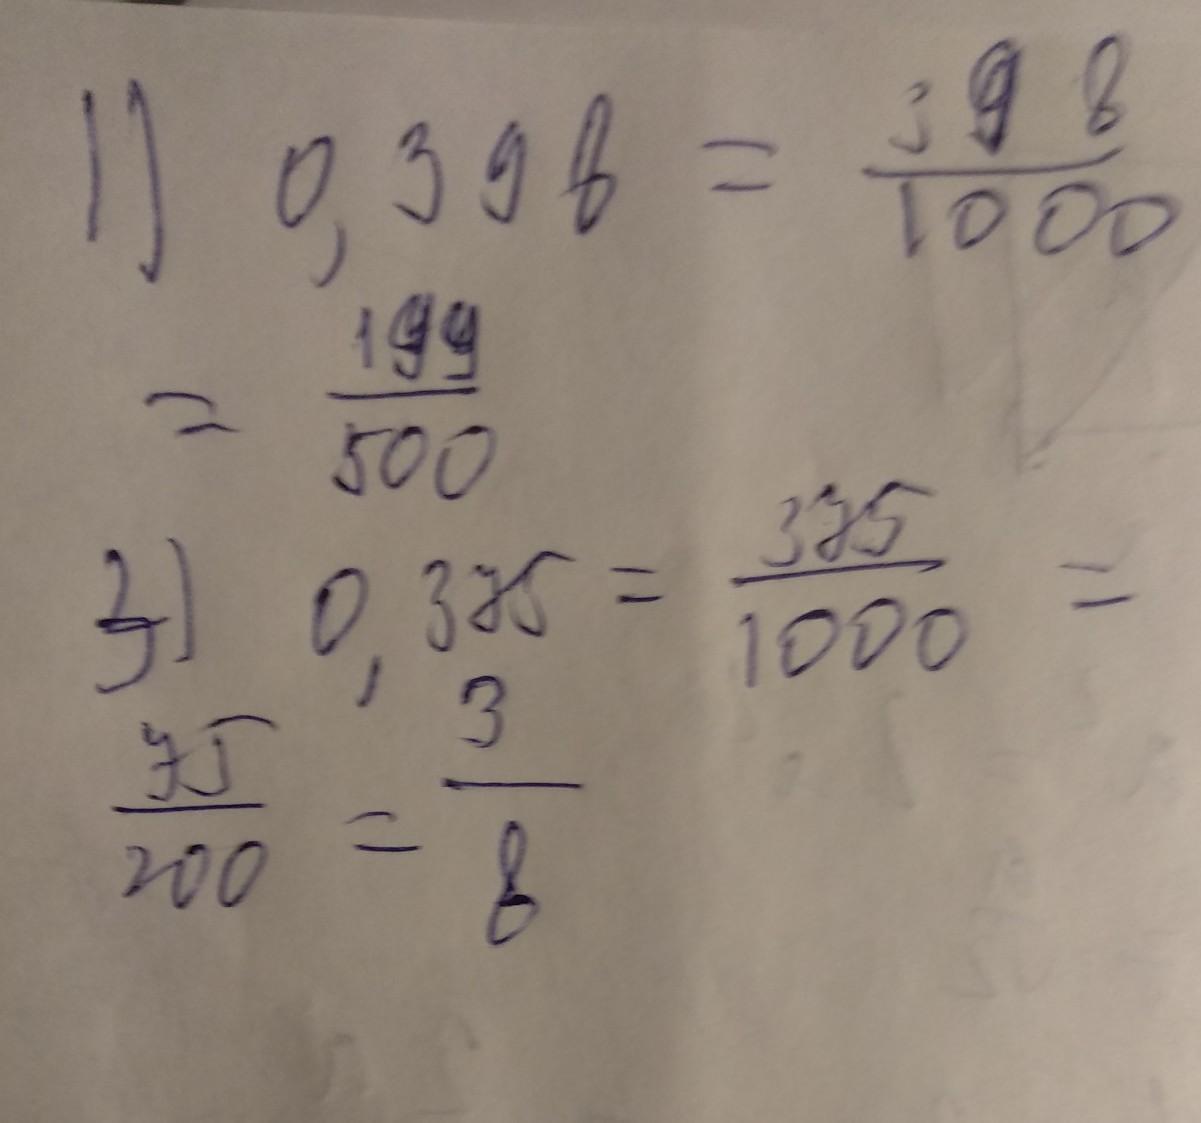 1) 0,398 = 398/1000
= 199/500
2) 0,375 = 375/1000 =
75/200 = 3/8